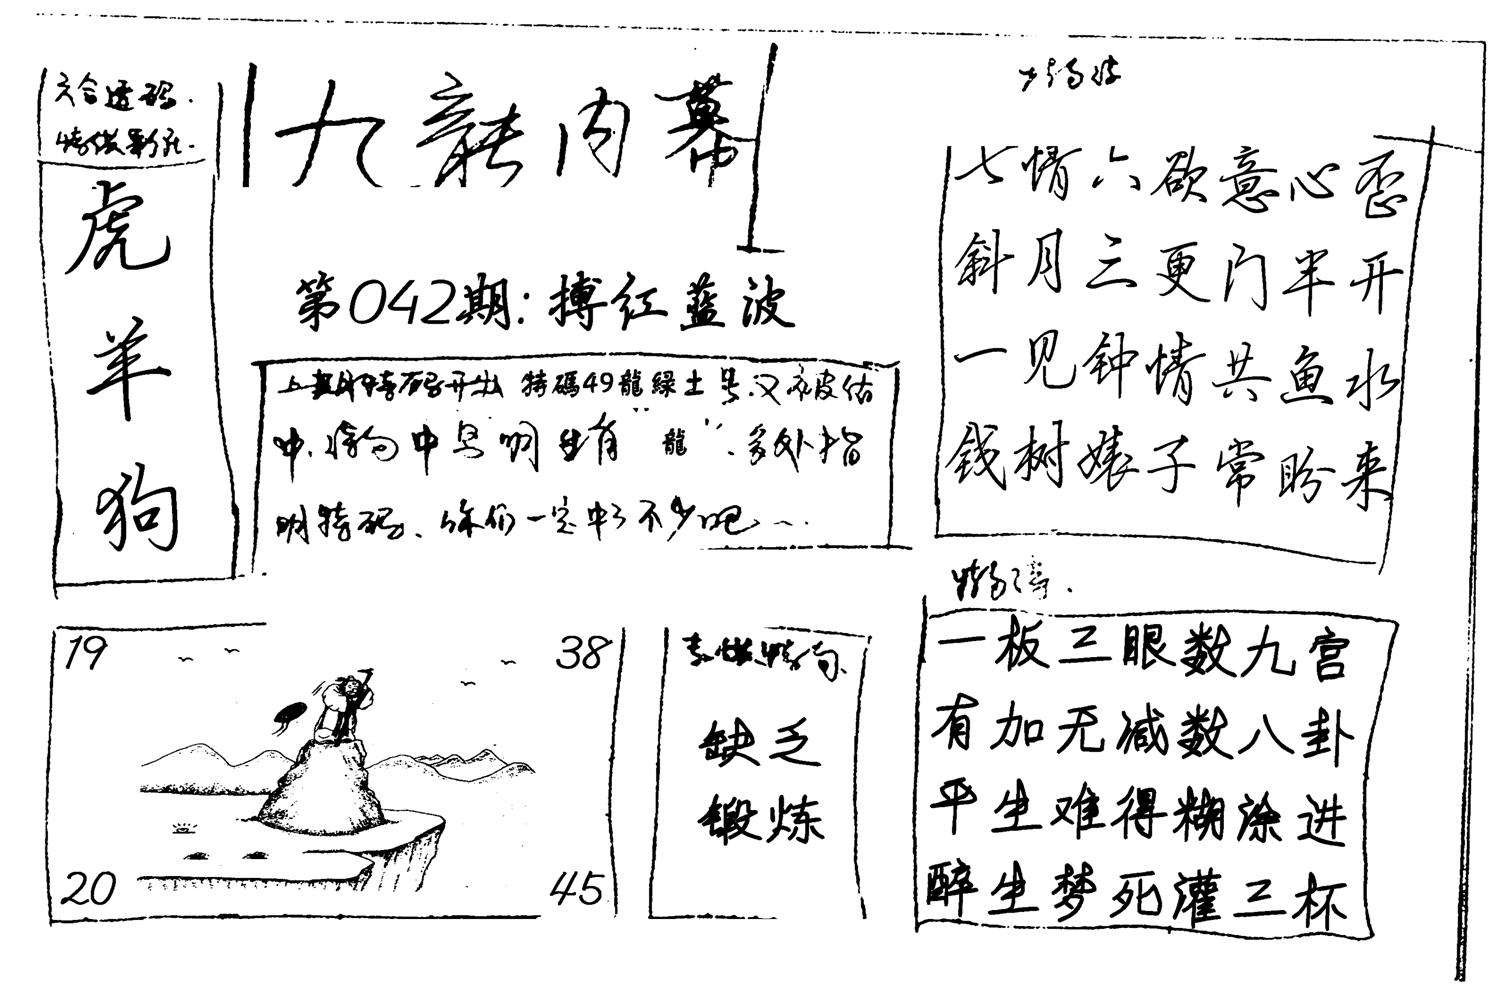 六合透码.
虎
羊
狗
九龍内幕
第042期:搏红蓝波
上期特码开出 特碼49龍綠土号.又被估
中.特句中是明生肖“龍”.多处指
明特码、你们一定中了不少吧...
七情六欲意心歪
斜月三更门半开
一见钟情共鱼水
钱树婊子常盼来
一板三眼数九宫
有加无减数八卦
平生难得糊涂进
醉生梦死灌三杯
缺乏
锻炼
19
38
20
45